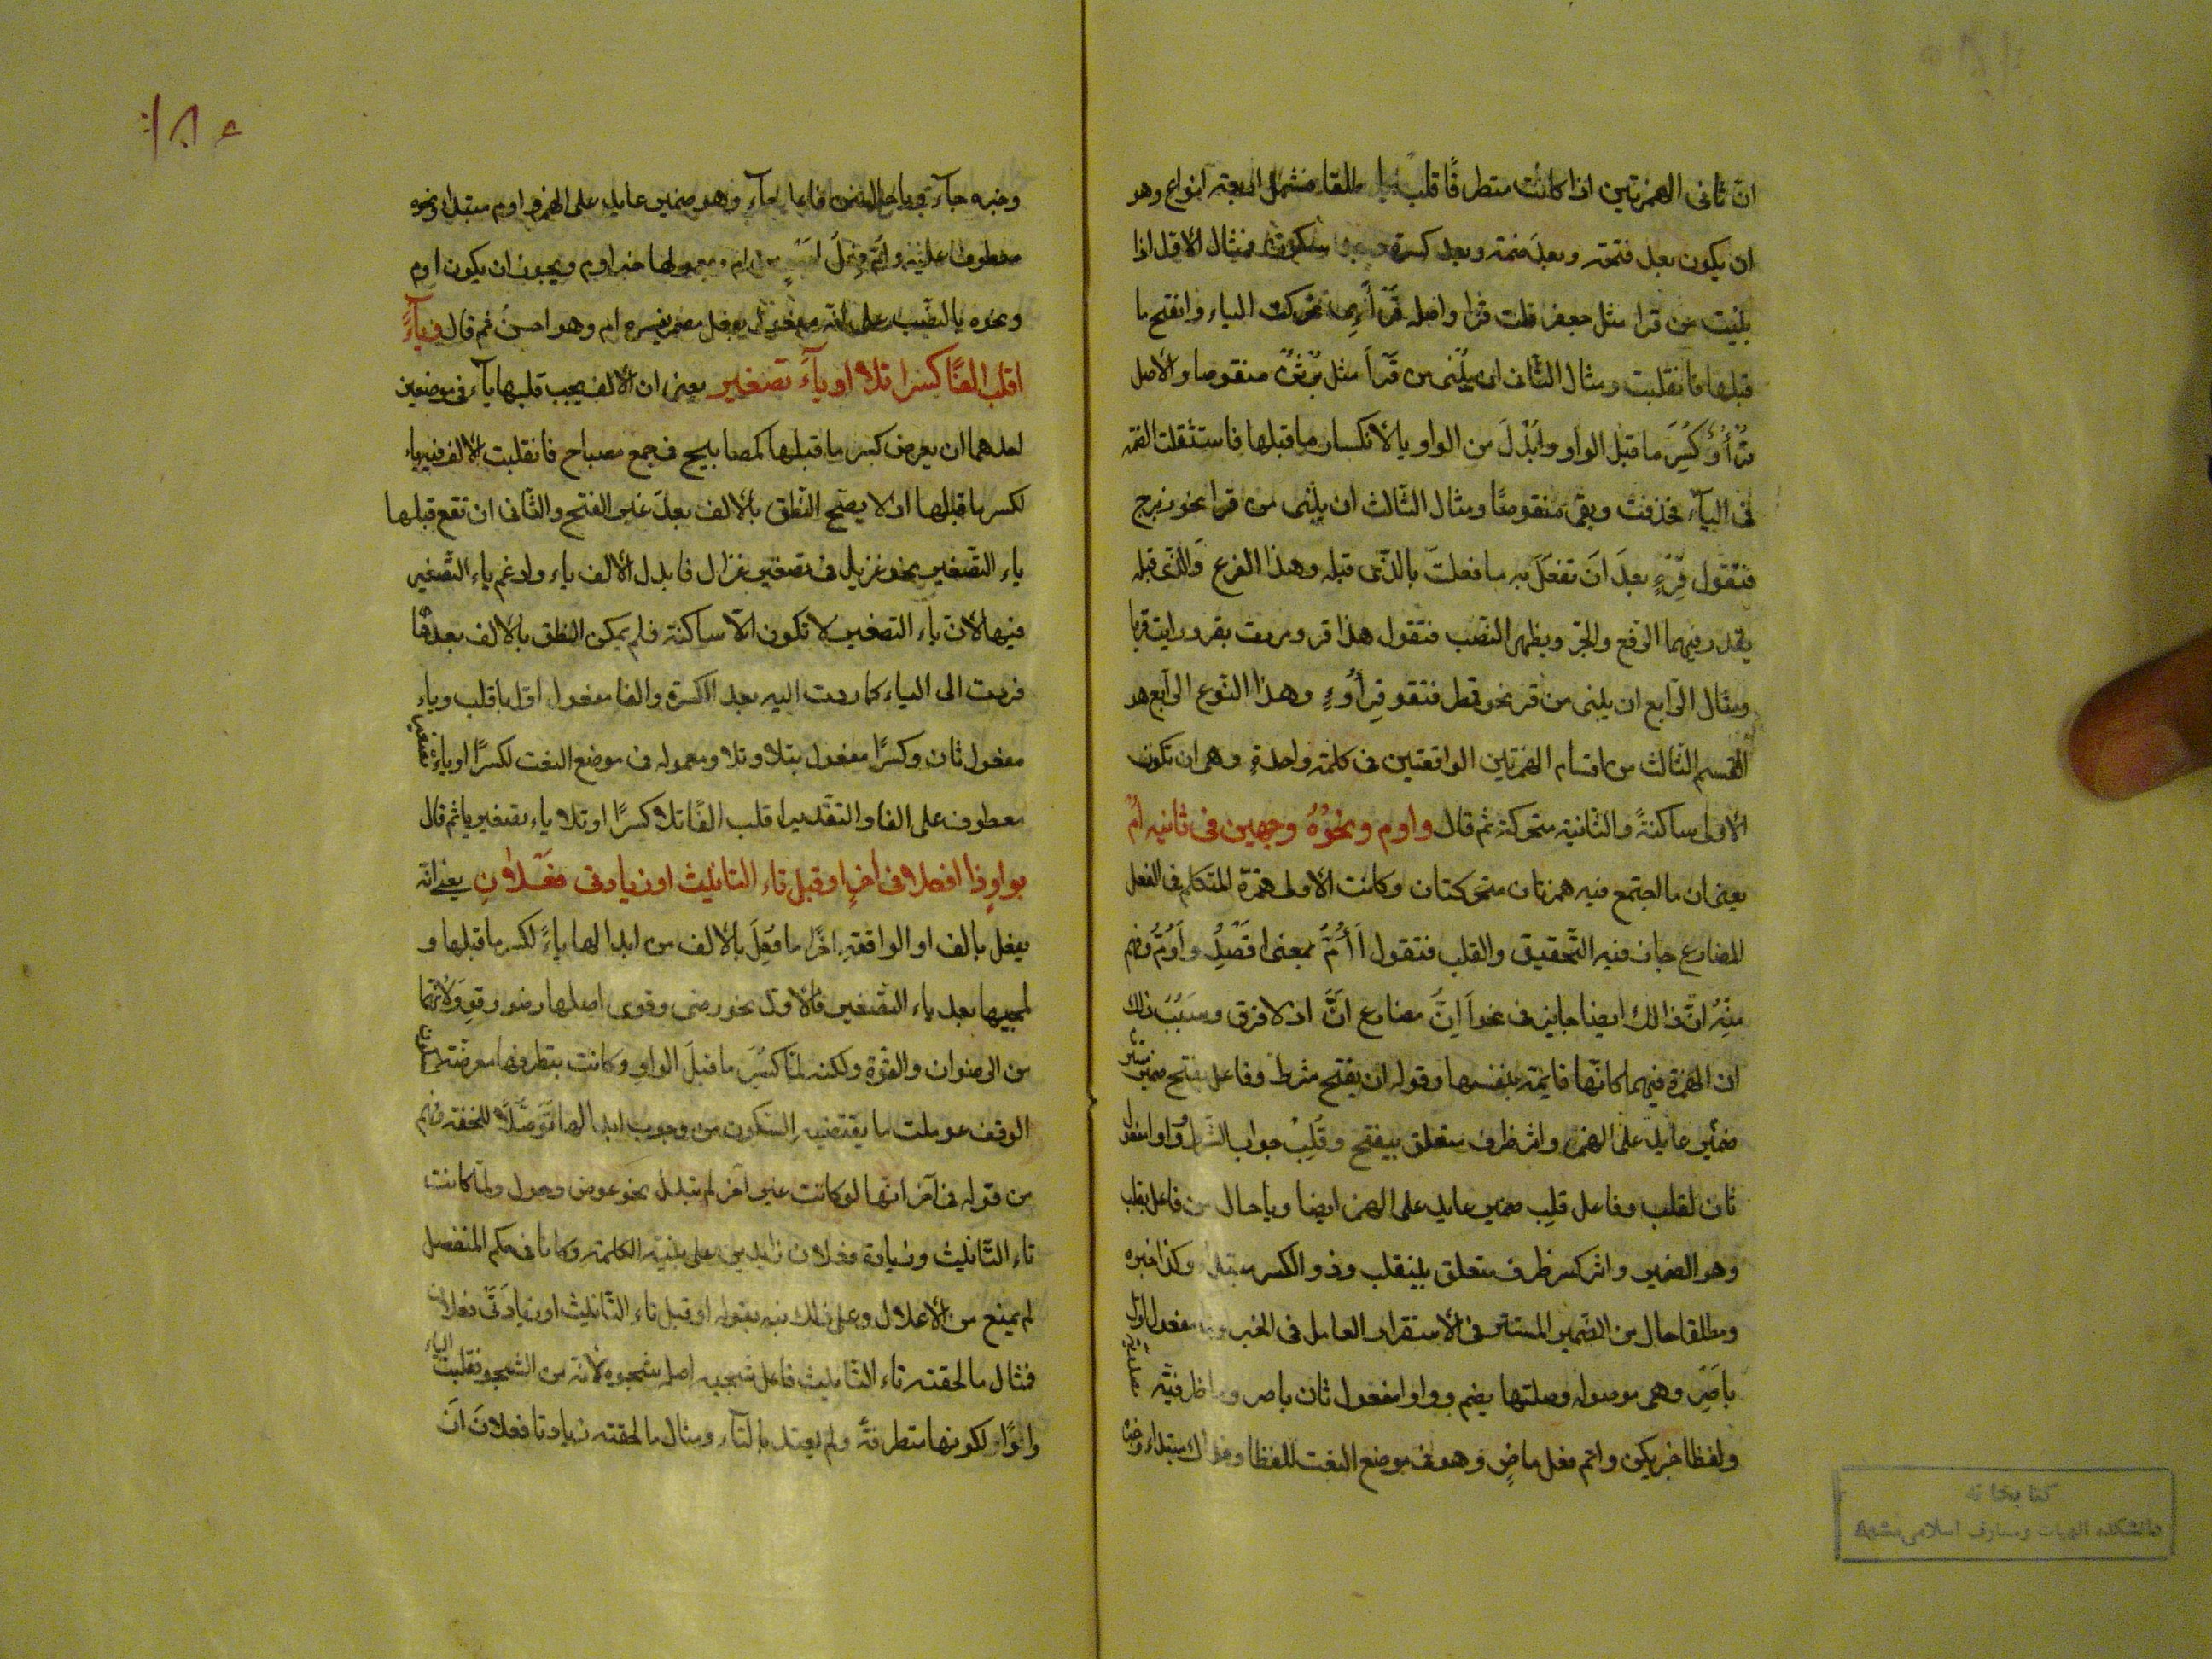 ان ثانى الهمزتين اذا كانت متطرفًا قلب يا مطلقا فشمل اربعة انواع وهو
ان يكون بعد فتحة وبعد ضمة وبعد كسرة وبعد سكون فمثال الاول اذا
بنيت من قرا مثل جعفر قلت قرا واصله قرأي تحركت الياء وانفتح ما
قبلها فانقلبت ومثال الثانى ان يبنى من قرأ مثل برثن منقوصا والاصل
قرأو كُسِرَ ما قبل الواو وابدل من الواو يا لانكسار ما قبلها فاستثقلت الضمة
فى الياء فحذفت وبقى منقوصًا ومثال الثالث ان يبنى من قرا نحو زبرج
فتقول قرءٍ بعد ان تفعل به ما فعلت بالذى قبله وهذا الفرع والذى قبله
يقدر فيهما الرفع والجر ويظهر النصب فتقول هذا قر ومررت بقر ورايت قريا
ومثال الرابع ان يبنى من قر نحو قمطر فتقو قرأوء وهذا النوع الرابع هو
القسم الثالث من اقسام الهمزتين الواقعتين فى كلمة واحدةٍ وهى ان تكون
الاولى ساكنةً والثانية متحركة ثم قال واوم ونحوُهُ وجهين فى ثانيه اُمّ
يعنى ان ما اجتمع فيه همزتان متحركتان وكانت الاولى همزة المتكلم فى الفعل
المضارع جاز فيه التحقيق والقلب فتقول أَأُمُّ بمعنى اقصِدُ واَوُمُّ وفهم
منهُ انّ ذالك ايضا جايز فى نحو أَاِنّ مضارع انَّ اذ لا فرق وسبَبُ ذلك
ان الهمزة فيهما كانها قايمة بنفسها وقوله ان يفتح شرط وفاعل يفتح ضمير مستتر
ضمير عايد على الهمزه واثر ظرف متعلق بيفتح وقُلِبْ جواب الشرط وواوا مفعول
ثان لقلب وفاعل قلِب ضمير عايد على الهمز ايضا ويا حال من فاعل ينقلب
وهو الضمير واثر كسر ظرف متعلق بينقلب وذو الكسر مبتدا وكذا خبره
ومطلقا حال من الضمير المستتر فى الاستقرار العامل فى الخبر وما مفعول اول
باصِرْ وهى موصوله وصلتها يضم وواوا مفعول ثان باصر وما ظرفيّة مصدرية
ولفظا خبر يكن واتم فعل ماضٍ وهو فى موضع النعت للفظا وذاك مبتداء وخبره
وخبره جاء ويا حال من فاعل جاء وهو ضمير عايد على الهمز واوم مبتدا ونحوه
معطوف عليه وامّ فى محل ومعمولها خبر اوم ويجوز ان يكون اوم
ونحوه بالنصب على انه مفعول بفعل مضمر يفسره ام وهو احسن ثم قال وياءً
اقلب الفًا كسرا تلا او ياءَ تصغير يعنى ان الالف يجب قلبها ياء فى موضعين
احدهما ان يعرض كسر ما قبلها كمصابيح فى جمع مصباح فانقلبت الالف فيه ياء
لكسر ما قبلها اذ لا يصح النّطق بالالف بعدَ غير الفتح والثّانى ان تقع قبلها
ياء التصغير نحو غزيل فى تصغير غزال فابدل الالف ياء وادغم ياء التصغير
فيها لان ياء التصغير لا تكون الّا ساكنة فلم يمكن النطق بالالف بعدها
فردت الى الياء كما ردت اليه بعد الكسرة والفا مفعول اول باقلب وياء
مفعول ثان وكسرًا مفعول بتلا وتلا ومعموله فى موضع النعت لكسرًا او ياء تصغير
معطوف على الفا والتقدير اقلب الفًا تلا كسرًا او تلا ياء تصغير يا ثم قال
بواوٍ ذا افعلا فى اخرٍ او قبل تاء التانيث او زيادتى فعَلانِ يعنى انه
يفعل بالف او الواقعة اخرًا ما فُعِلَ بالالف من ابدالها ياءً لكسر ما قبلها و
لمجيها بعد ياء التصغير فالاول نحو رضى وقوى اصلها رضو وقوِوَ لانهما
من الرضوان والقوة ولكنه لمّا كُسِرَ ما قبلَ الواوِ وكانت بتطرفها معرضة لسكون
الوقف عوملت ما يقتضيه السكون من وجوب ابدالها توصّلًا للخفة وفهم
من قوله فى آخر انها لو كانت غير آخر لم تبدل نحو عوض وحول ولمّا كانت
تاء التّانيث وزيادة فعلان زايدين على بنية الكلمة وكانا فى حكم المنفصل
لم يمنع من الاعلال وعلى ذلك نبه بقوله او قبل تاء التّانيث او زيادَتَى فعلان
فمثال ما لحقته تاء التانيث فاعل شجيه اصله شجوه لانه من الشجو فقلبت الياء
واوًا ولكونها متطرفةً ولم يعتد بالتاء ومثال ما لحقته زيادتا فعلانَ انَ
كتابخانه
دانشكده الهيات ومعارف اسلامى مشهد